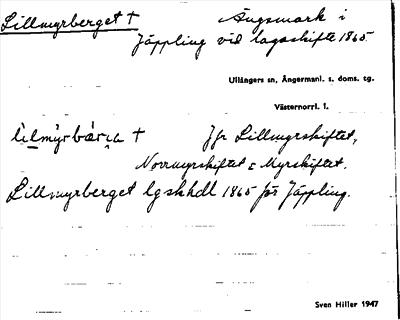 Lillmyrberget † Ängsmark i
Jäppling vid lagaskifte 1865
Ullångers sn, Ångermanl. s. doms. tg.
Västernorrl. l.
lìlmýrbær̨a † Jfr Lillmyrskiftet,
Norrmyrskiftet & Myrskiftet.
Lillmyrberget lgskhdl 1865 för Jäppling.
Sven Hiller 1947